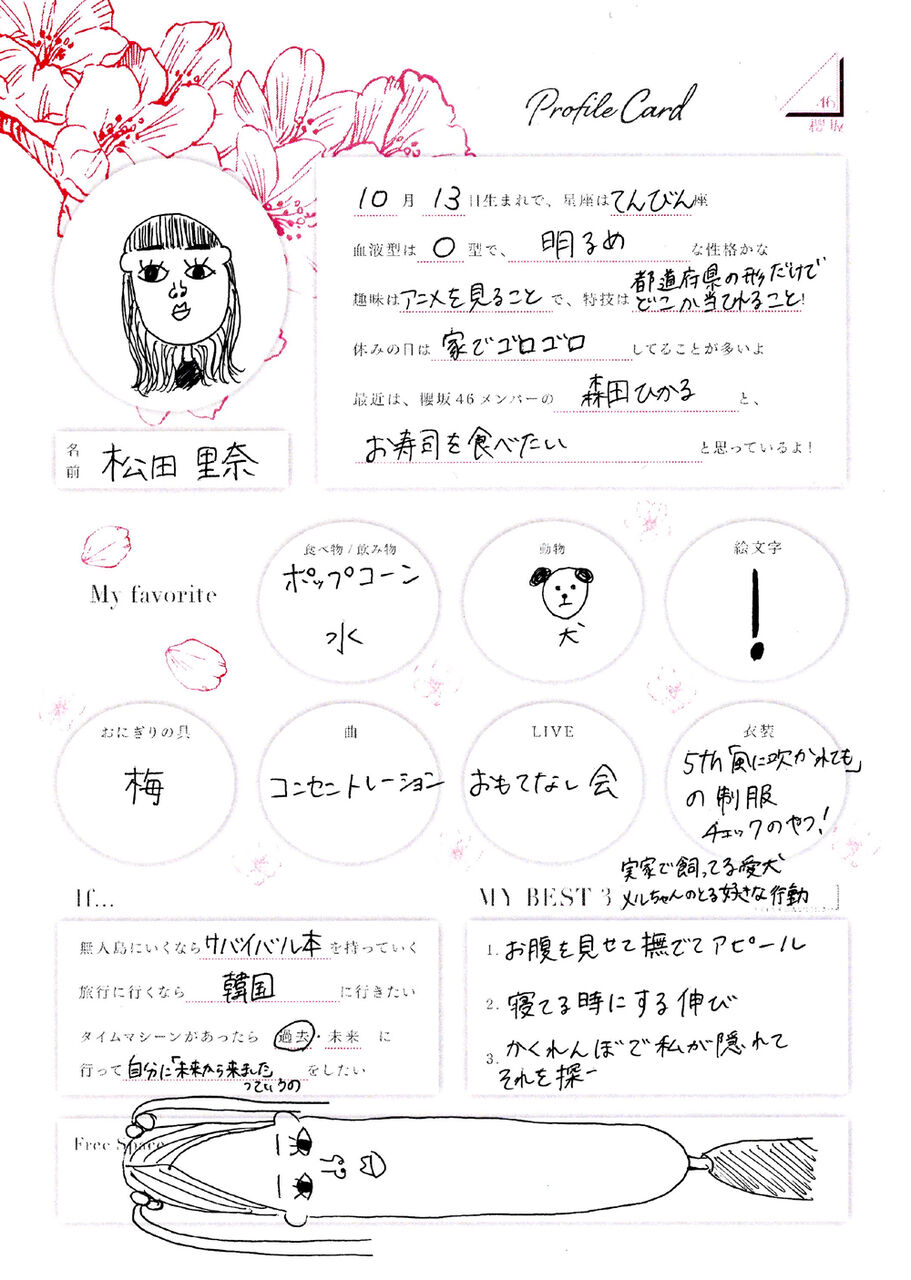 Profile Card
46
櫻坂
10月13日生まれで、星座はてんびん座
血液型はO型で、明るめな性格かな
趣味はアニメを見ることで、特技は都道府県の形だけで
どこか当てれること!
休みの日は家でゴロゴロしてることが多いよ
最近は、櫻坂46メンバーの森田ひかると、
お寿司を食べたいと思っているよ!
名前 松田里奈
My favorite
食べ物/飲み物
ポップコーン
水
動物
犬
絵文字
!
おにぎりの具
梅
曲
コンセントレーション
LIVE
おもてなし会
衣装
5th「風に吹かれても」
の制服
チェックのやつ!
If...
無人島にいくならサバイバル本を持っていく
旅行に行くなら韓国に行きたい
タイムマシーンがあったら 過去・未来 に
行って自分に「未来から来ました
っていうのをしたい
MY BEST 3
実家で飼ってる愛犬
メルちゃんのとる好きな行動
1. お腹を見せて撫でてアピール
2. 寝てる時にする伸び
3. かくれんぼで私が隠れて
それを探ー
Free Space